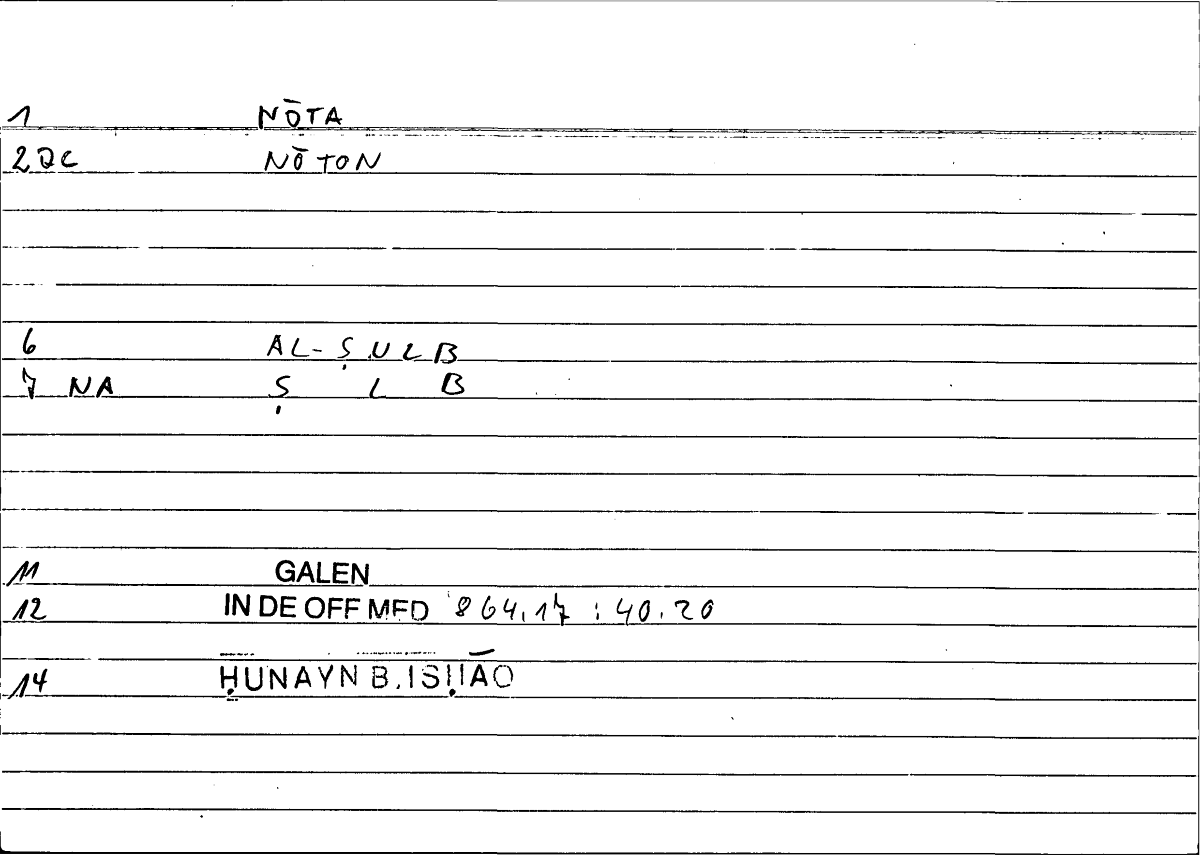 1 NŌTA
2 QC NŌTON
6 AL-ṢULB
7 NA Ṣ L B
11 GALEN
12 IN DE OFF MED 864,17 : 40.20
14 ḤUNAYN B. ISḤĀQ